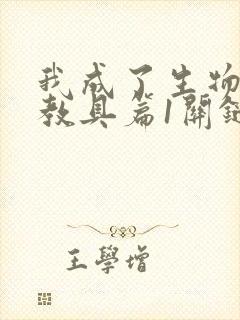 我成了生物
教具篇1開始
王學增